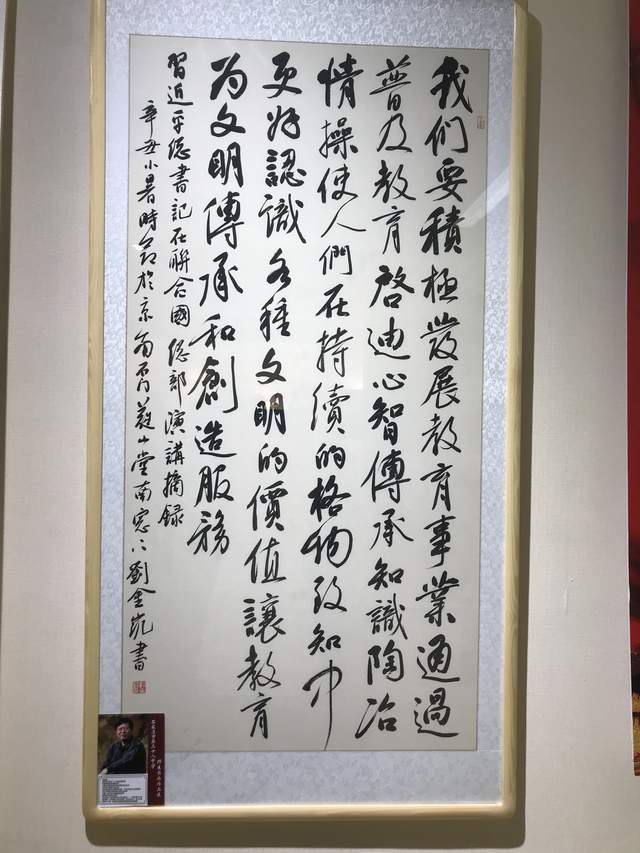 我们要積極發展教育事業通過
普及教育啓迪心智傳承知識陶冶
情操使人們在持續的格物致知中
更好認識各種文明的價值讓教育
为文明傳承和創造服務
習近平總書記在聯合國總部演講摘録
辛丑小暑時節於京
堂南窓下劉金凱書